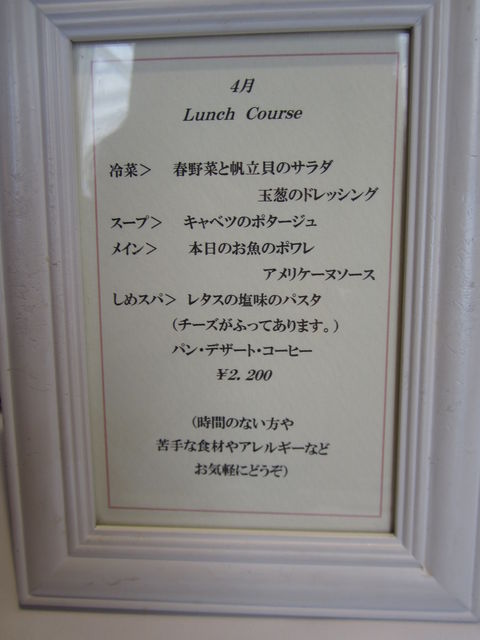 4月
Lunch Course
冷菜＞ 春野菜と帆立貝のサラダ
玉葱のドレッシング
スープ＞ キャベツのポタージュ
メイン＞ 本日のお魚のポワレ
アメリケーヌソース
しめスパ＞ レタスの塩味のパスタ
（チーズがふってあります。）
パン・デザート・コーヒー
￥2.200
（時間のない方や
苦手な食材やアレルギーなど
お気軽にどうぞ）